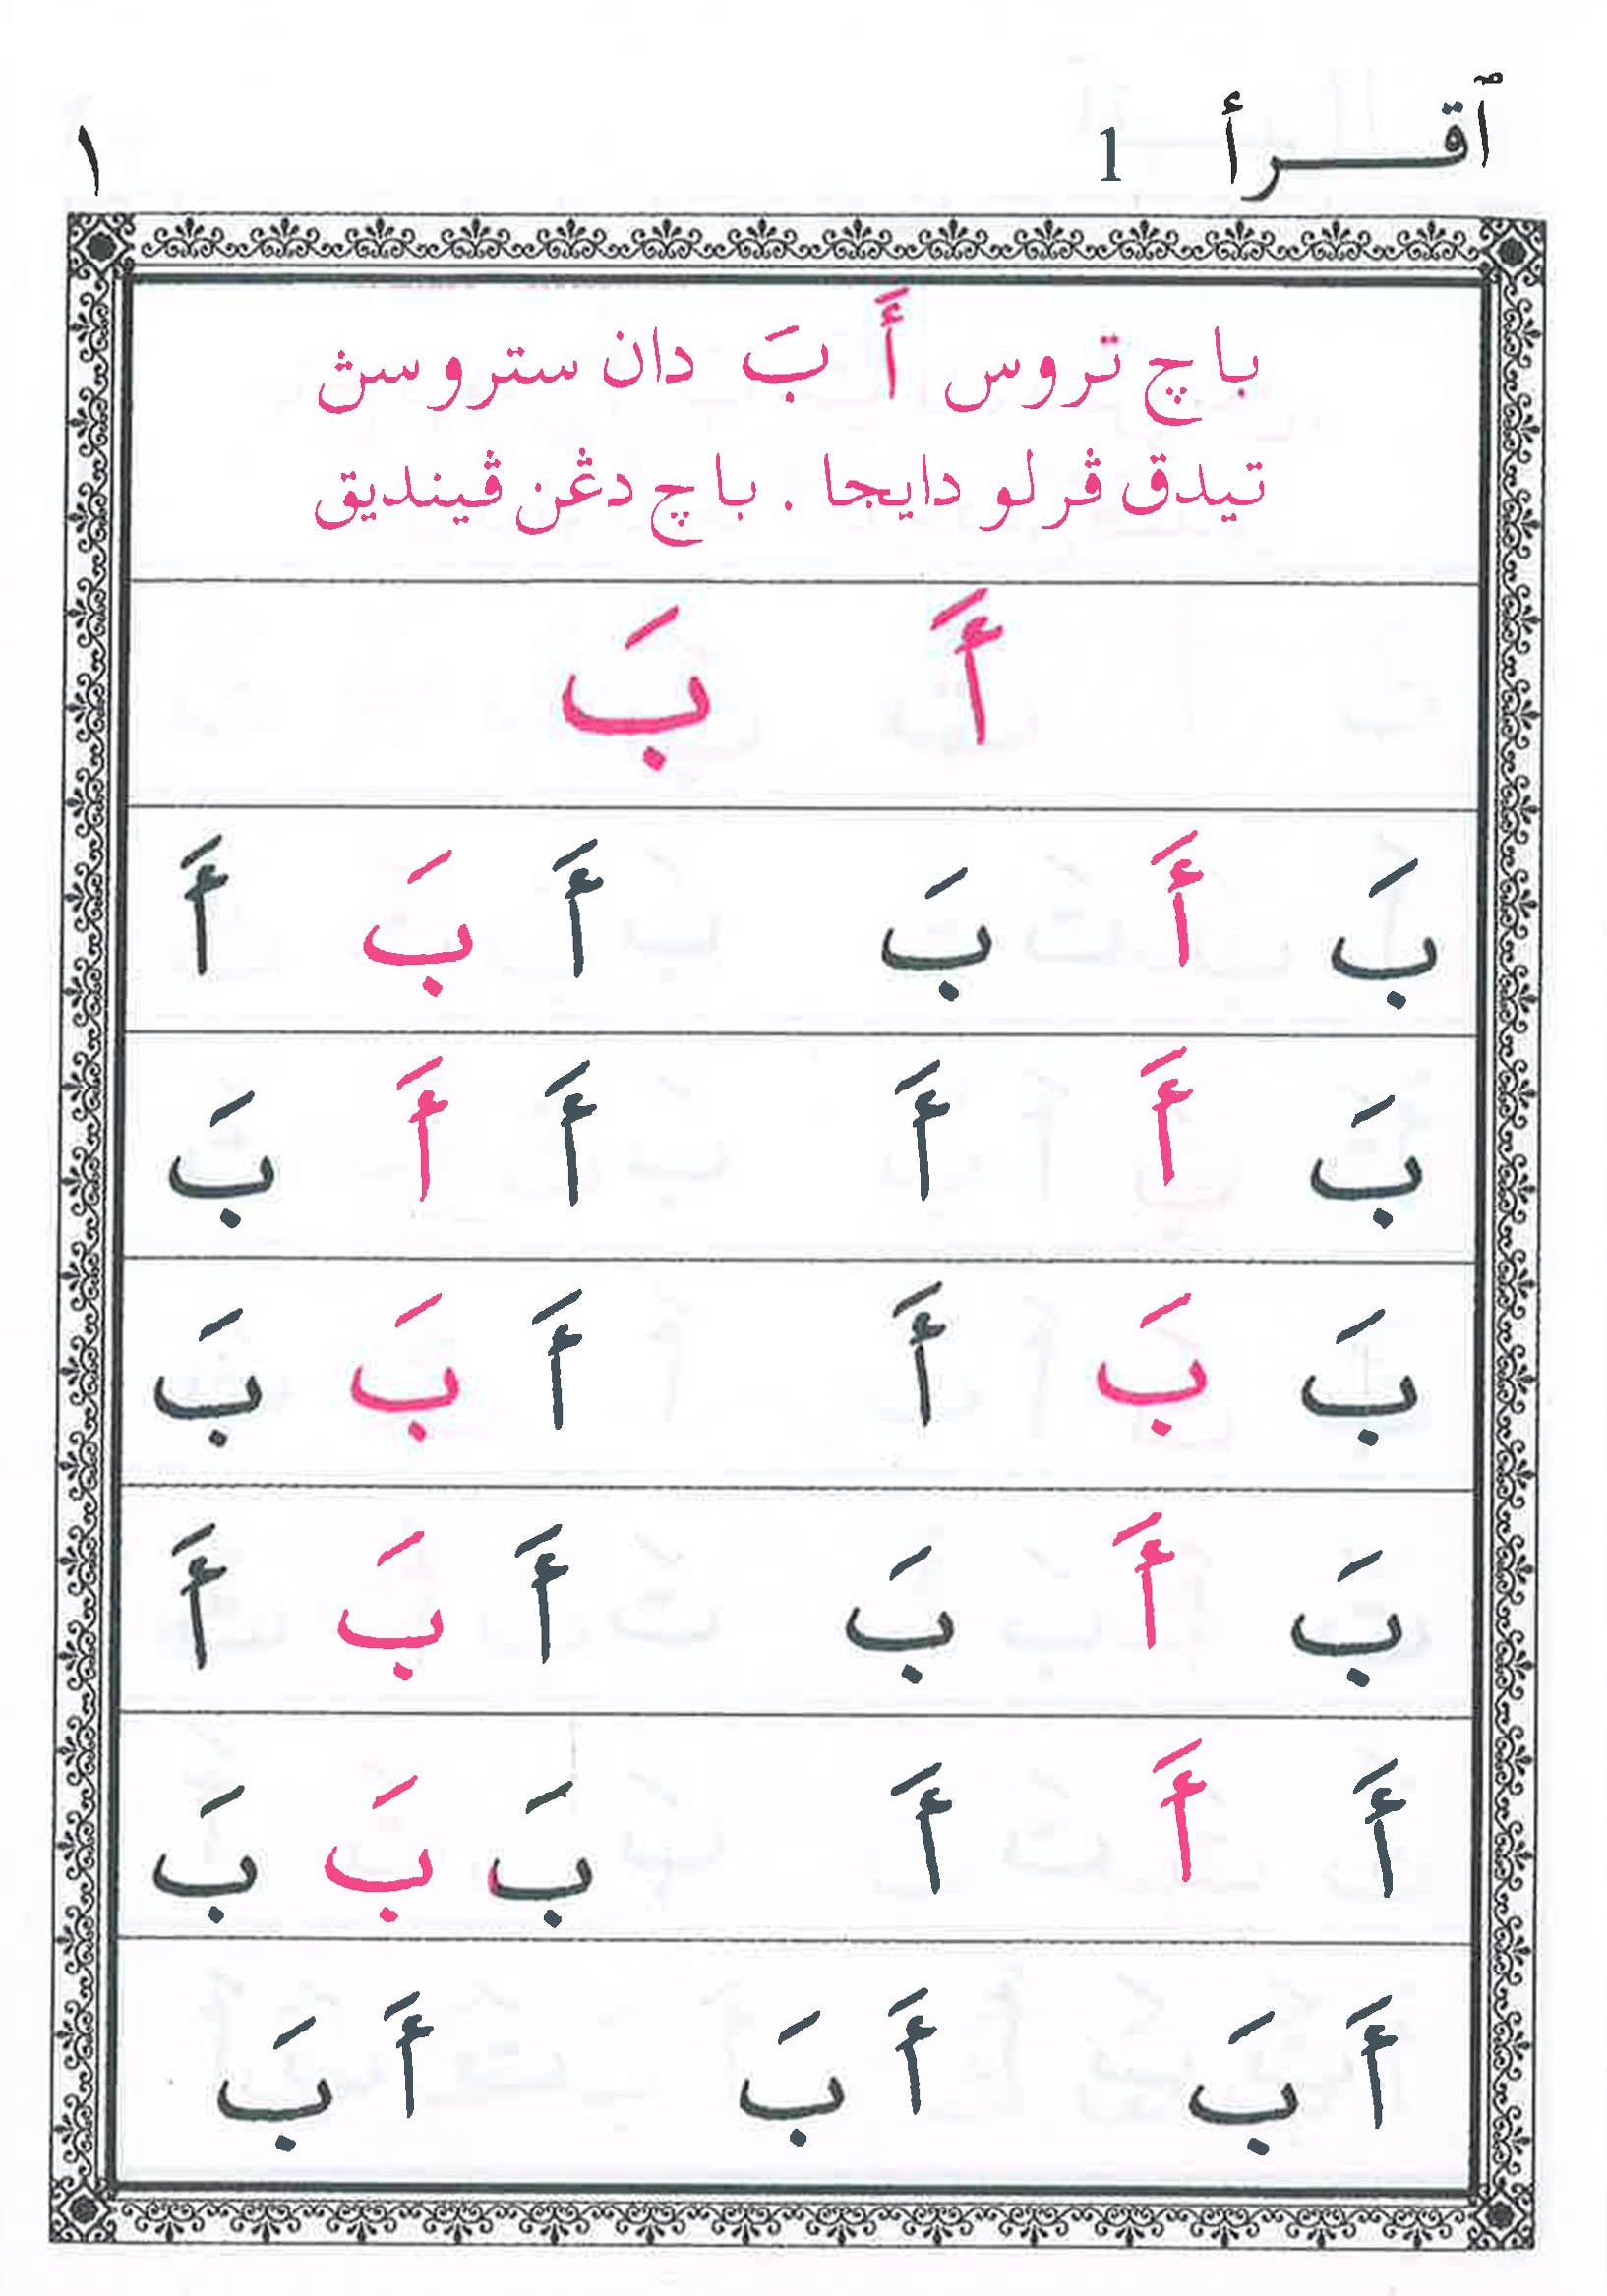 ٱقـــرأ 1 ١
باچ تروس أَ بَ دان ستروسڽ
تيدق ڤرلو دايجا . باچ دڠن ڤينديق
أَ بَ
بَ أَ بَ أَ بَ أَ
بَ أَ أَ أَ أَ بَ
بَ بَ أَ أَ بَ بَ
بَ أَ بَ أَ بَ أَ
أَ أَ أَ بَ بَ بَ
أَ بَ أَ بَ أَ بَ